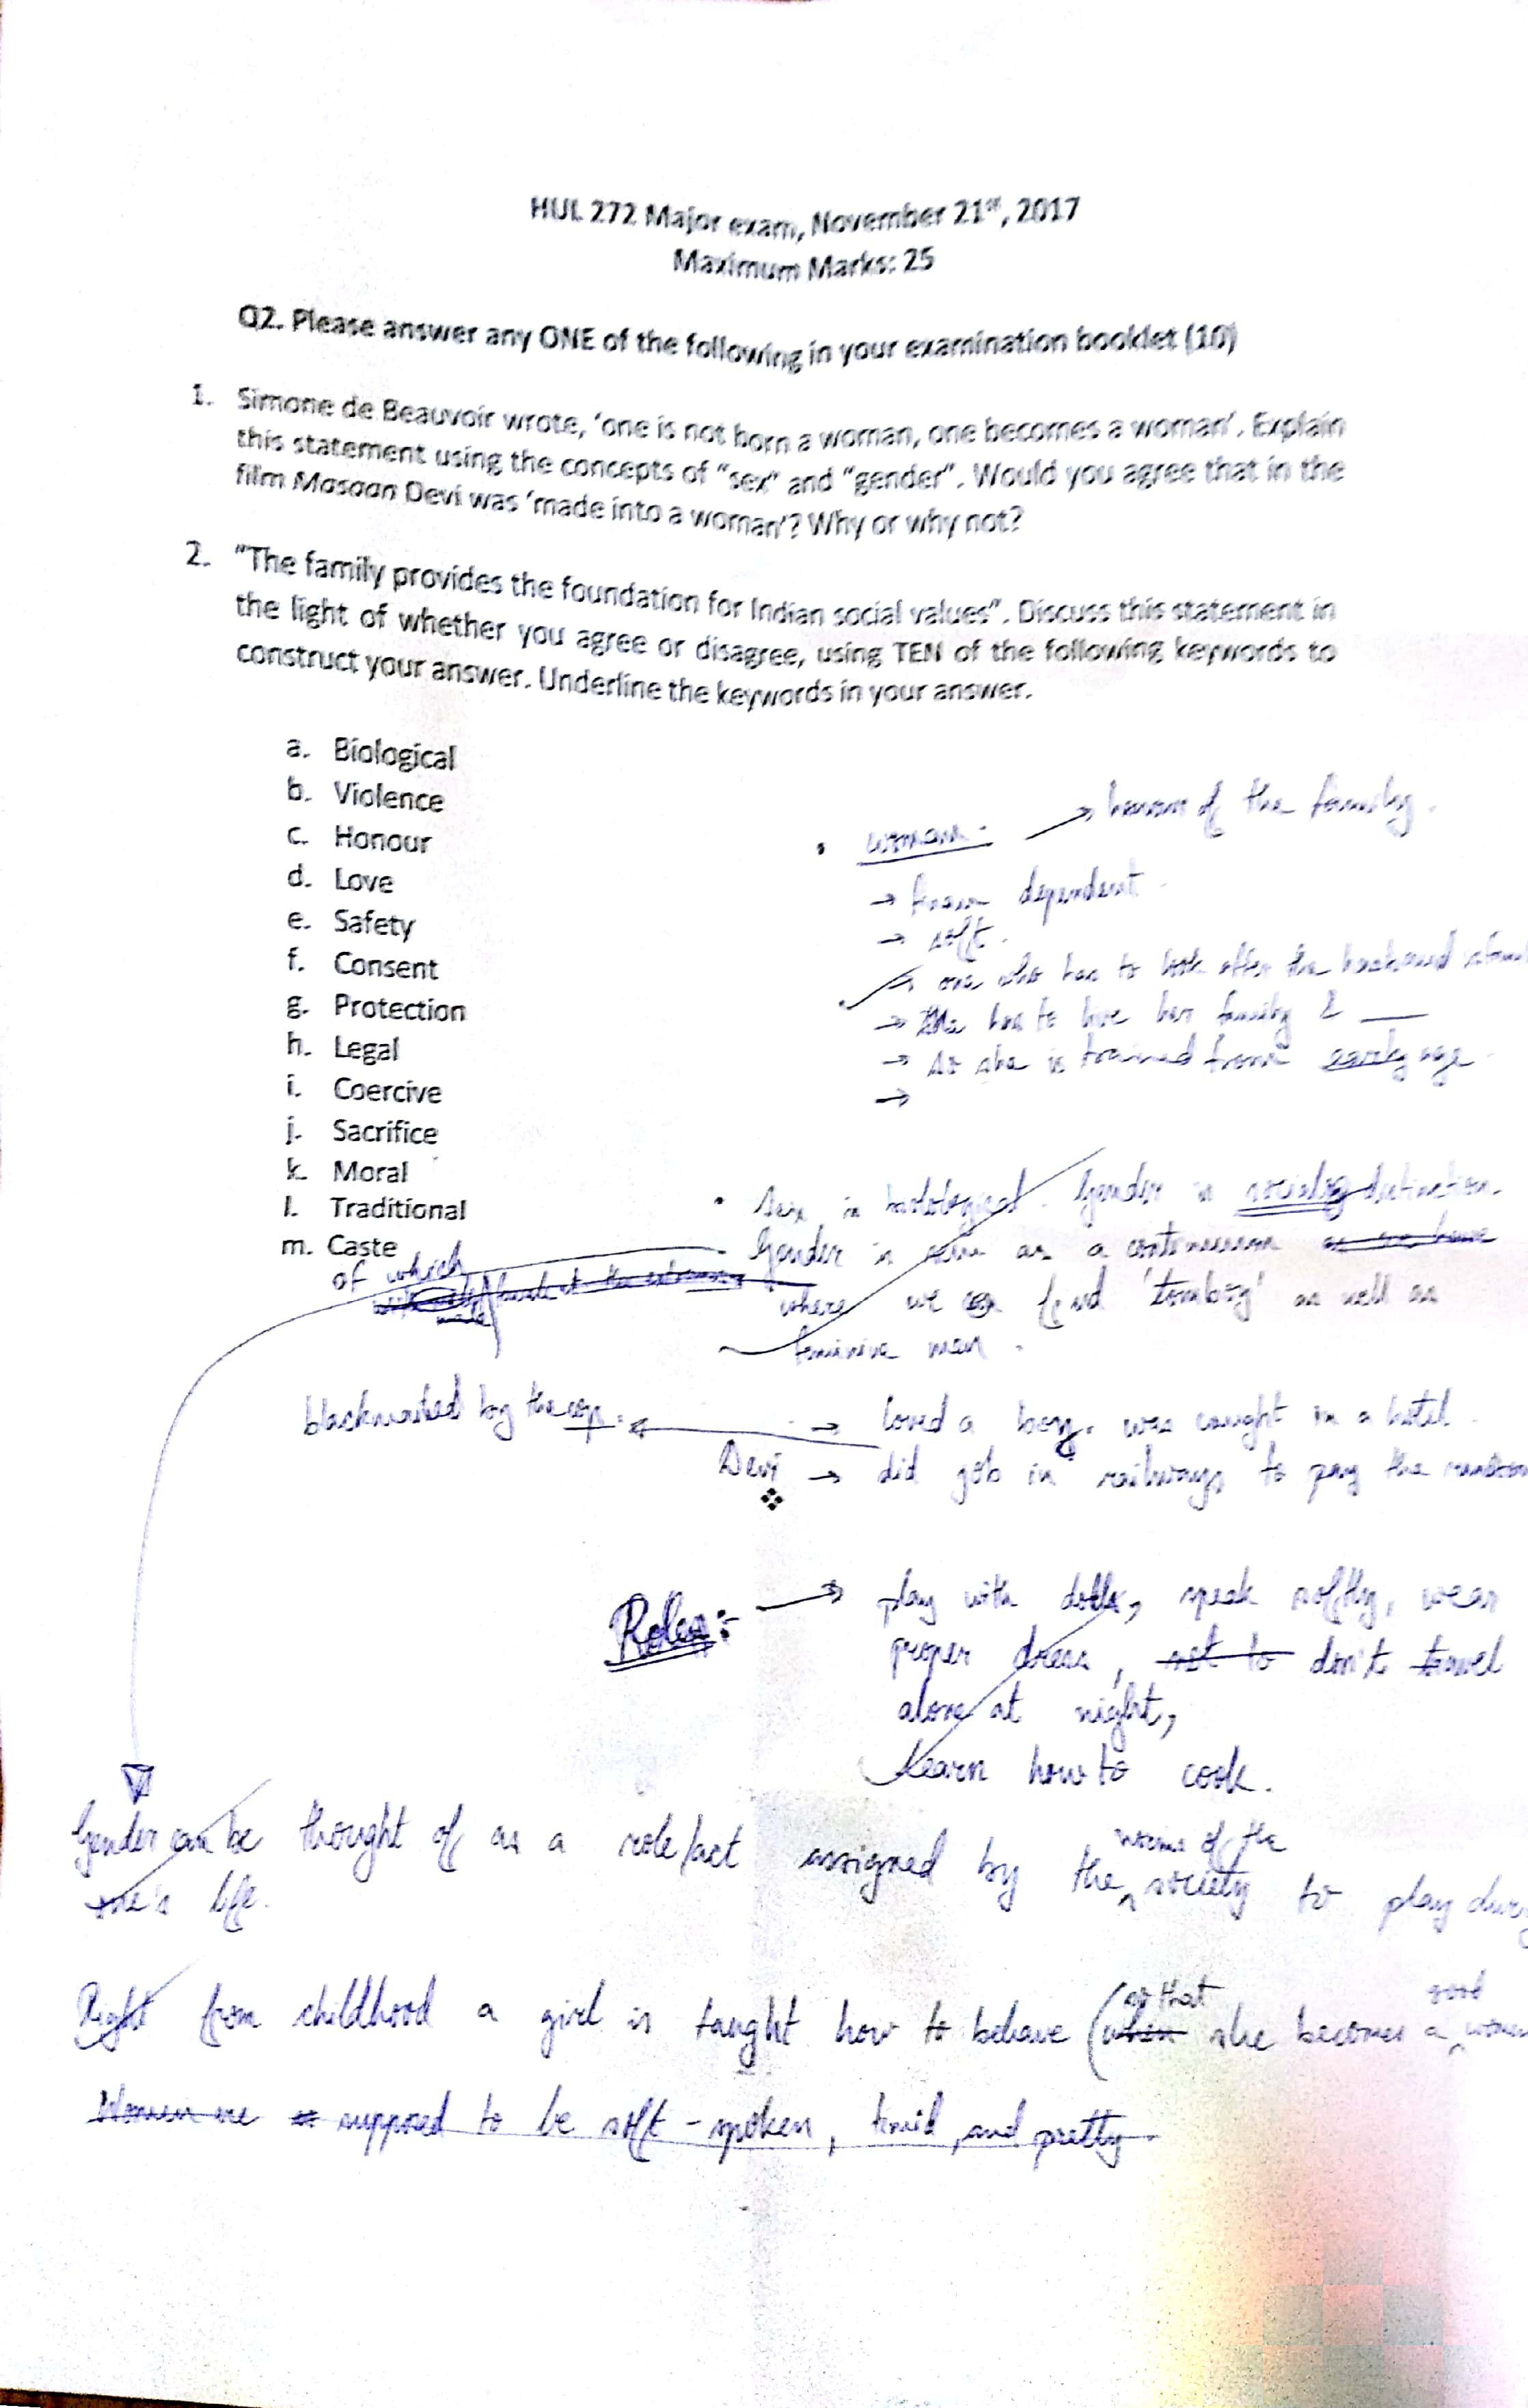 HUL 272 Major exam, November 21st, 2017
Maximum Marks: 25
Q2. Please answer any ONE of the following in your examination booklet (10)
1. Simone de Beauvoir wrote, 'one is not born a woman, one becomes a woman'. Explain
this statement using the concepts of "sex" and "gender". Would you agree that in the
film Masaan Devi was 'made into a woman'? Why or why not?
2. "The family provides the foundation for Indian social values". Discuss this statement in
the light of whether you agree or disagree, using TEN of the following keywords to
construct your answer. Underline the keywords in your answer.
a. Biological
b. Violence
c. Honour
d. Love
e. Safety
f. Consent
g. Protection
h. Legal
i. Coercive
j. Sacrifice
k. Moral
l. Traditional
m. Caste
• woman. → honour of the family.
→ dependent
→ soft.
→ one who has to look after the
→ has to live her family &
→ so she is trained from early age.
→
• Sex is biological. Gender is distinction.
Gender is as a continuum as we have
of which
where we find 'tomboy' as well as
feminine men.
→ loved a boy. was caught in a hotel.
blackmailed by the cop.
Devi → did job in railways to pay the
Roles:- → play with dolls, speak softly, wear
proper dress, not to don't travel
alone at night,
learn how to cook.
Gender can be thought of as a role/act assigned by the norms of the society to play
one's life.
Right from childhood a girl is taught how to behave (when so that she becomes a good
Women are supposed to be soft-spoken, timid, and pretty.